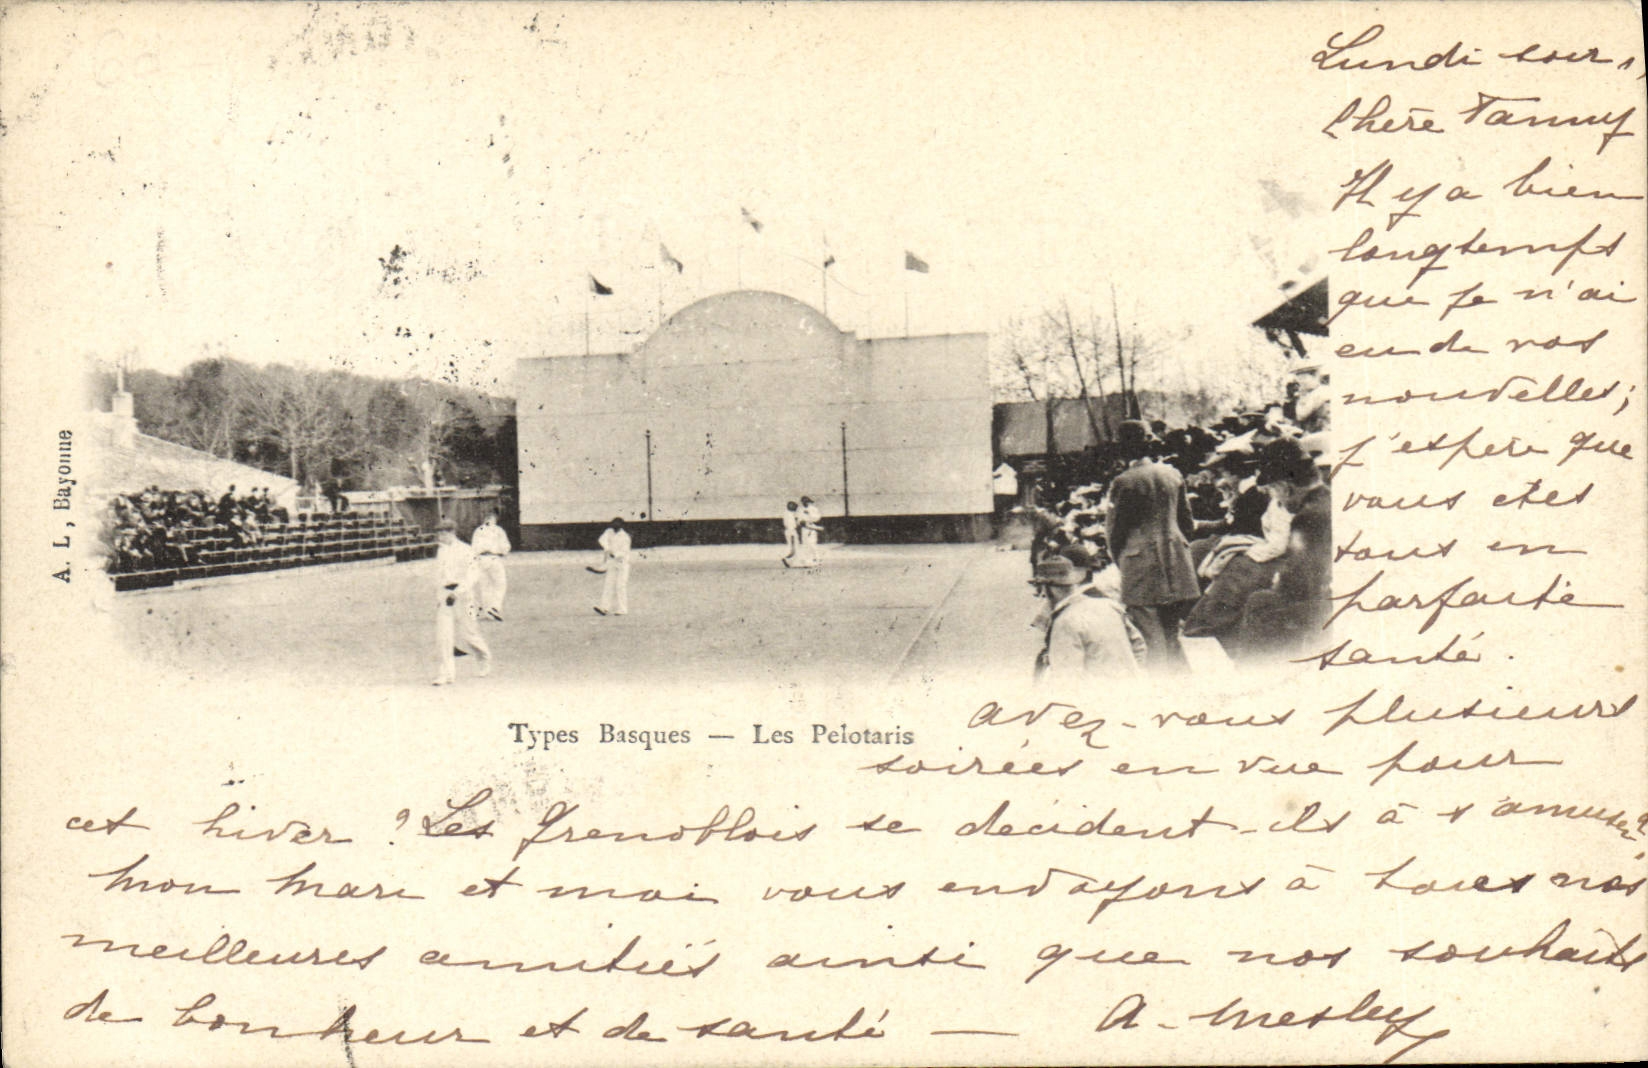 Lundi soir,
Chère Fanny
Il y a bien
longtemps
que je n'ai
eu de vos
nouvelles;
j'espère que
vous êtes
tous en
parfaite
santé.
A. L, Bayonne
Types Basques — Les Pelotaris
avez-vous plusieurs
soirées en vue pour
cet hiver? Les Grenoblois se décident-ils à s'amuser?
mon mari et moi vous envoyons à tous nos
meilleures amitiés ainsi que nos souhaits
de bonheur et de santé — A. Mesley